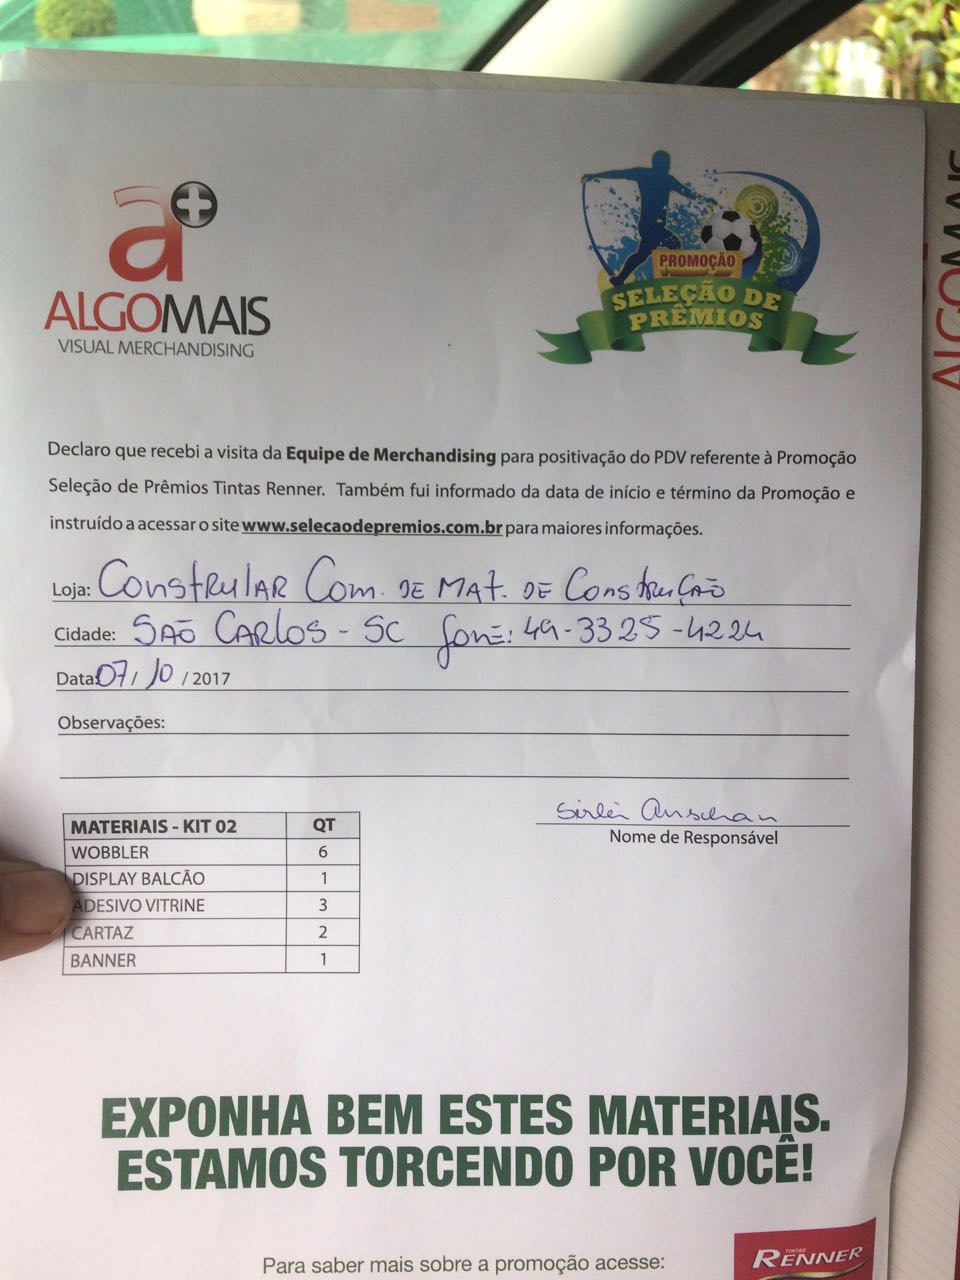 a+
ALGOMAIS
VISUAL MERCHANDISING
PROMOÇÃO
SELEÇÃO DE
PRÊMIOS
ALGOMAIS
Declaro que recebi a visita da Equipe de Merchandising para positivação do PDV referente à Promoção
Seleção de Prêmios Tintas Renner. Também fui informado da data de início e término da Promoção e
instruído a acessar o site www.selecaodepremios.com.br para maiores informações.
Loja: Constrular Com. DE MAT. DE Construção
Cidade: SAÕ CARLOS - SC fone: 49-3325-4224
Data: 07/ 10 / 2017
Observações:
Sirlei
Nome de Responsável
MATERIAIS - KIT 02 QT
WOBBLER 6
DISPLAY BALCÃO 1
ADESIVO VITRINE 3
CARTAZ 2
BANNER 1
EXPONHA BEM ESTES MATERIAIS.
ESTAMOS TORCENDO POR VOCÊ!
Para saber mais sobre a promoção acesse:
TINTAS
RENNER